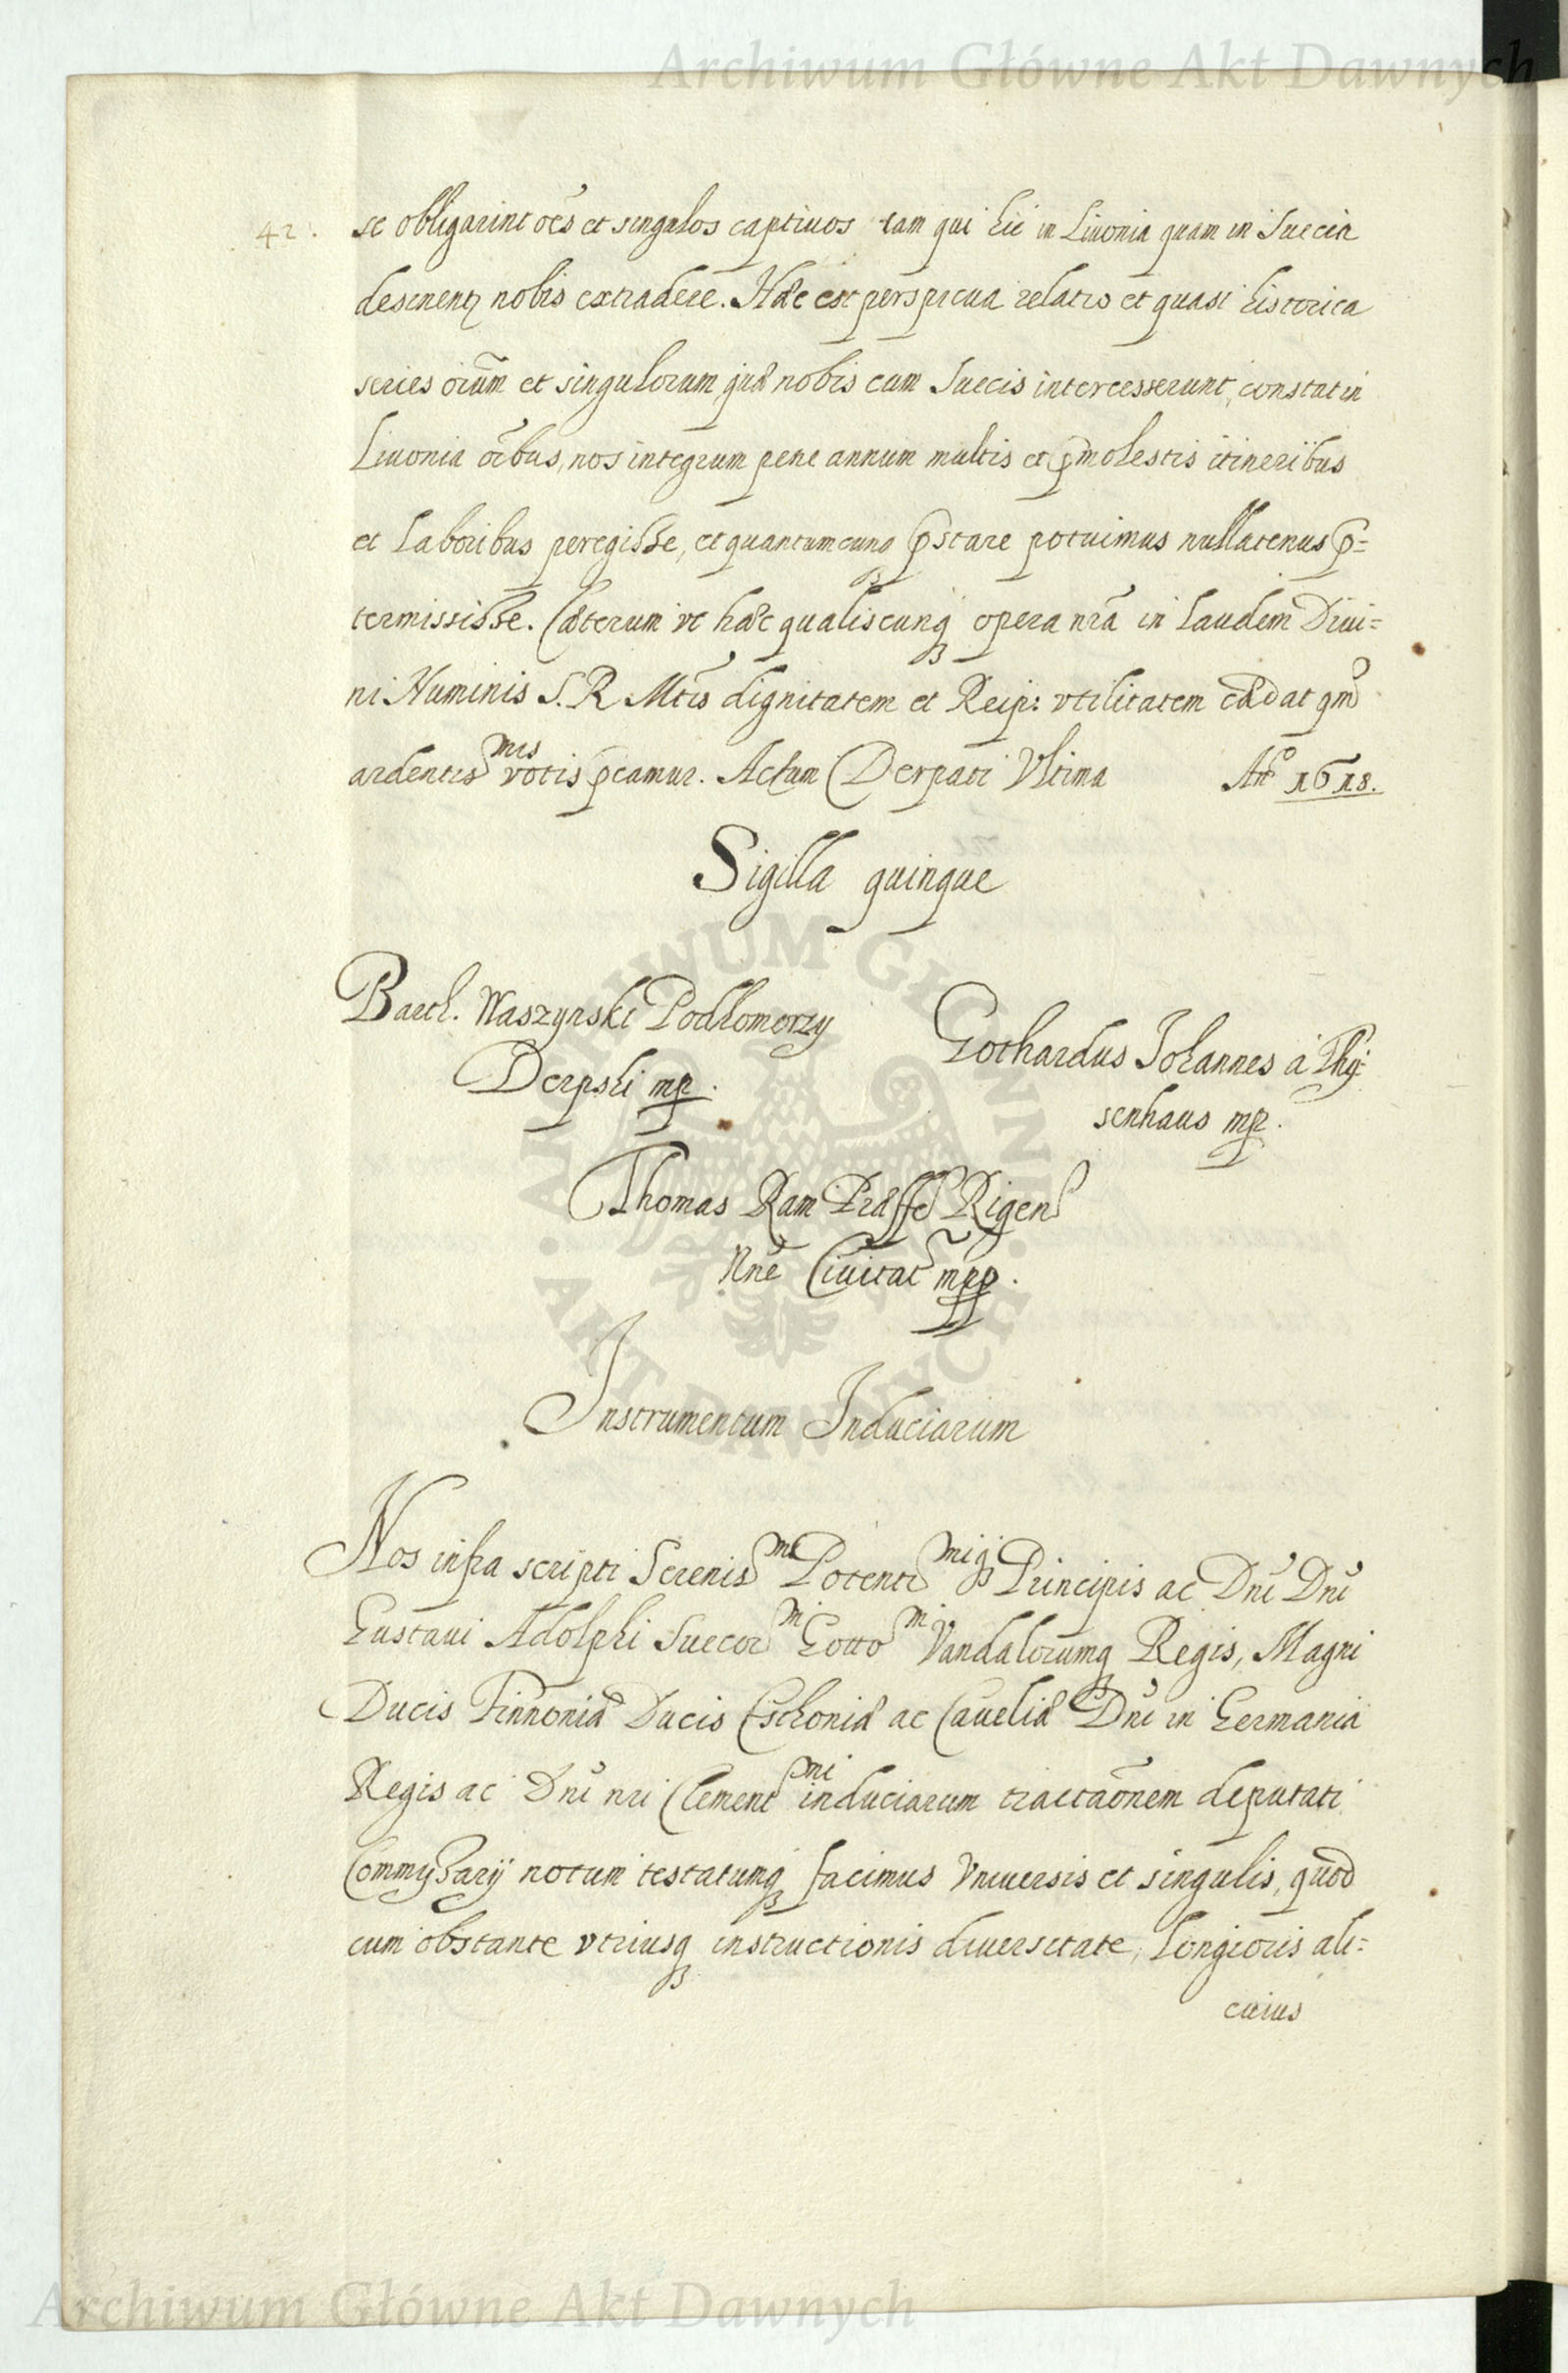 Archiwum Główne Akt Dawnych
42.
se obligarint oes et singulos captiuos tam qui hic in Liuonia quam in Suecia
desinentz nobis extradere. Hæc est perspicua relatio et quasi historica
series oium et singulorum quæ nobis cum Suecis intercesserunt, constat in
Liuonia oibus, nos integrum pene annum multis et p molestis itineribus
et Laboribus peregisse, et quantumcunq pstare potuimus nullatenus p=
termississe. Cæterum vt hæc qualiscunq opera nra in laudem Diui=
ni Numinis S. R Mtis dignitatem et Reip: vtilitatem cædat qm
ardentis mis votis pcamur. Actum Derpati Vltima Ao 1618.
Sigilla quinque
Barth. Waszynski Podkomorzy
Derpski mp.
Gothardus Johannes a Thy:
senhaus mp.
Thomas Ram Præffe Rigen
Nne Ciuitat mpp.
Instrumentum Induciarum
Nos infra scripti Serenis mi Potenti miq Principis ac Dni Dni
Gustaui Adolphi Suecor m Gotto m Vandalorumq Regis, Magni
Ducis Finnoniæ Ducis Esthoniæ ac Caueliæ Dni in Germania
Regis ac Dni nri Clement mi induciarum tractaonem deputati
Commyssarij notum testatumq facimus Vniuersis et singulis, quod
cum obstante vtriusq instructionis diuersitate, Longioris ali=
cuius
ARCHIWUM GŁÓWNE
AKT DAWNYCH
Archiwum Główne Akt Dawnych